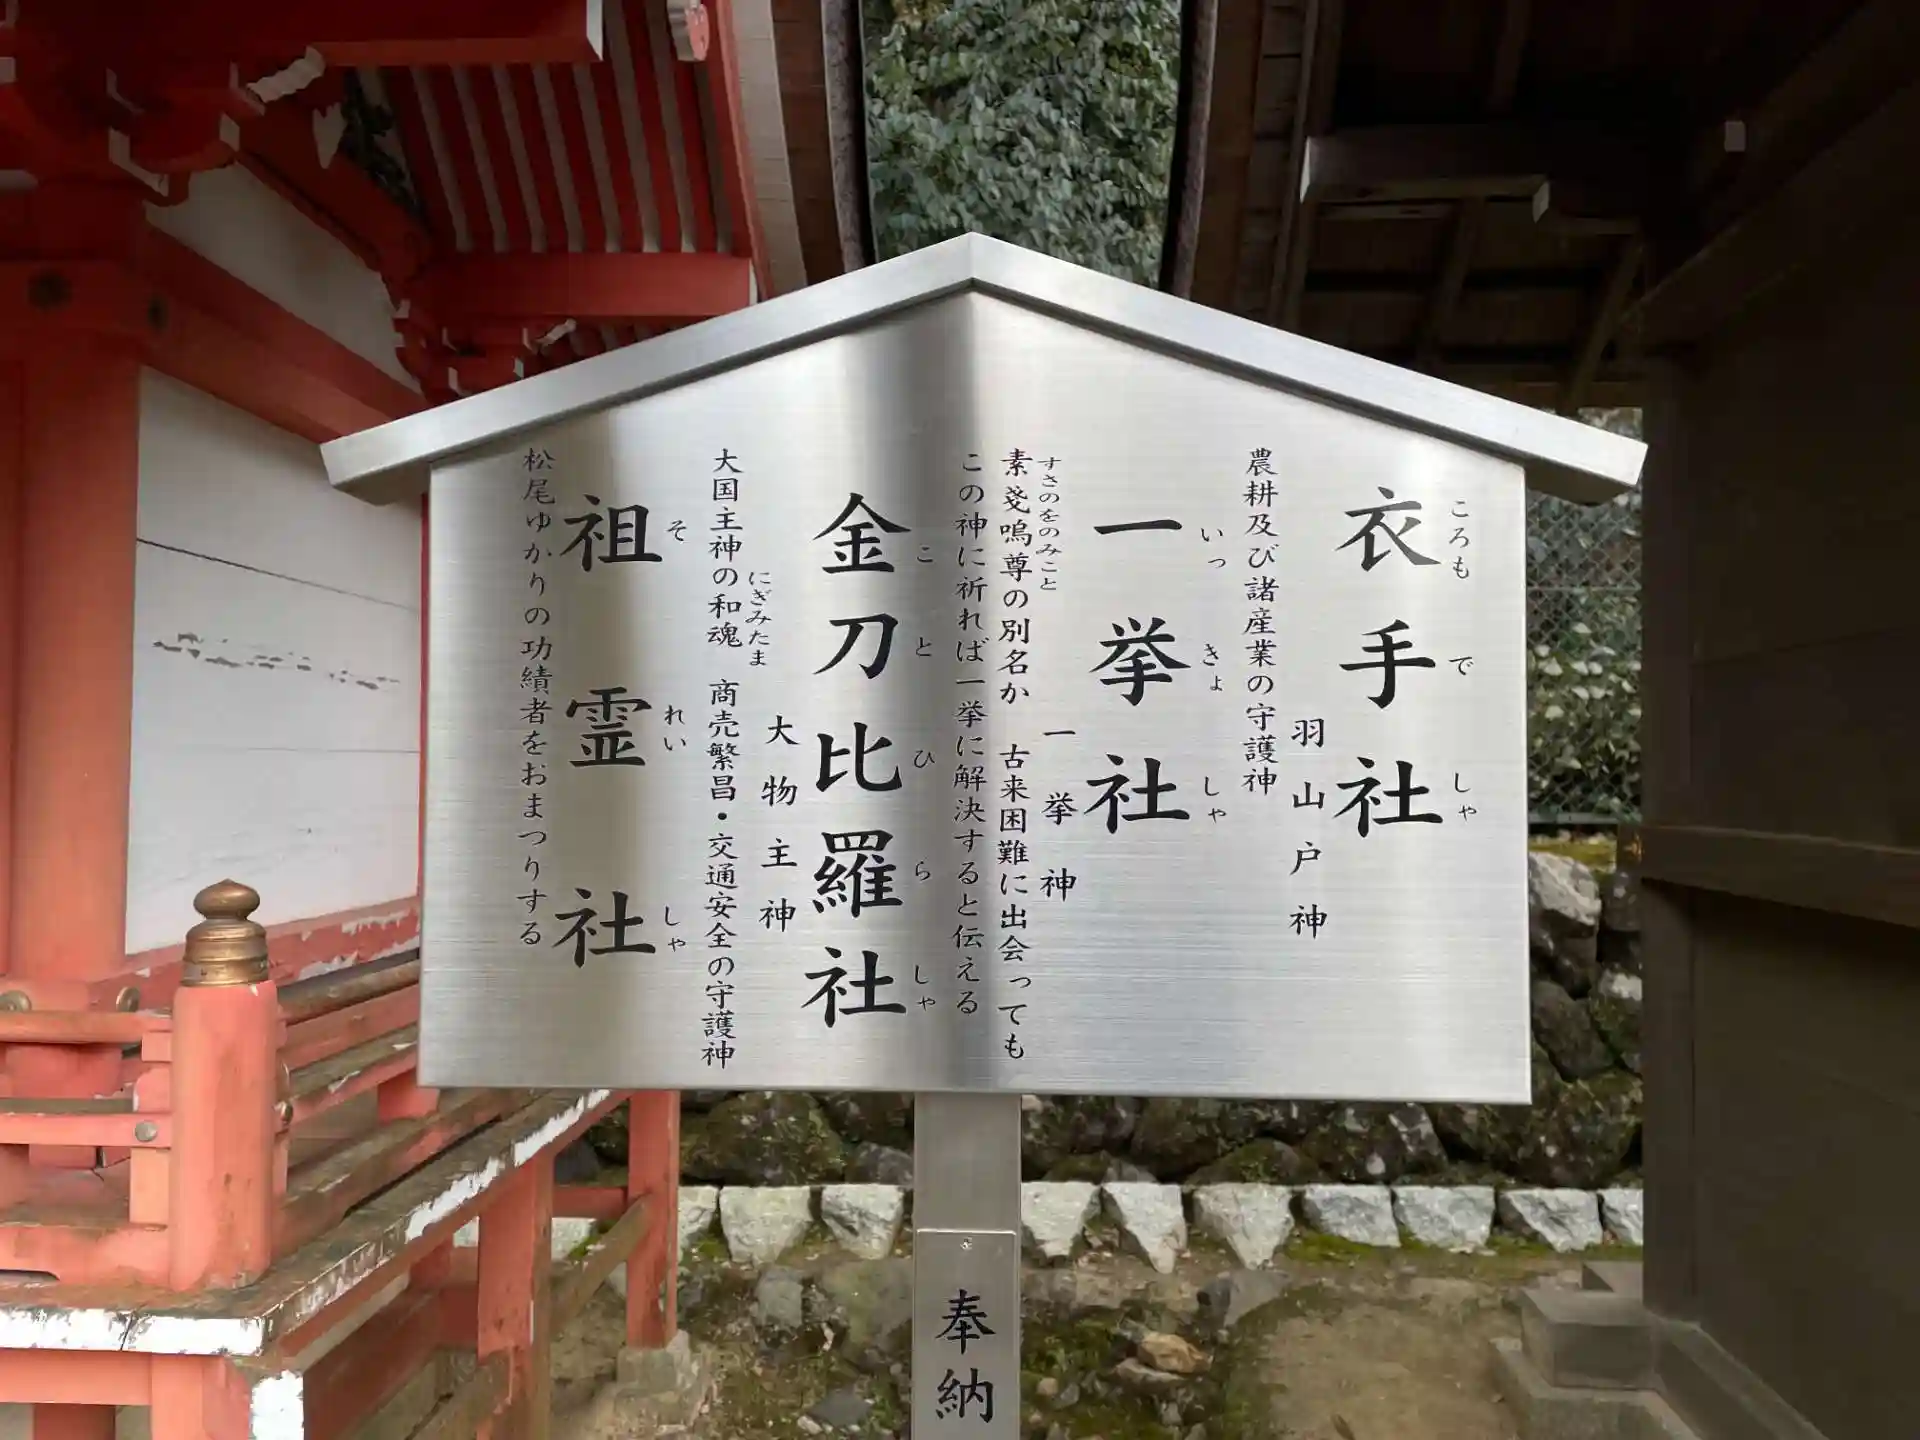 衣手社
ころもでしゃ
羽山戸神
農耕及び諸産業の守護神
一挙社
いっきょしゃ
一挙神
すさのをのみこと
素戔嗚尊の別名か 古来困難に出会っても
この神に祈れば一挙に解決すると伝える
金刀比羅社
ことひらしゃ
大物主神
にぎみたま
大国主神の和魂 商売繁昌・交通安全の守護神
祖霊社
それいしゃ
松尾ゆかりの功績者をおまつりする
奉納